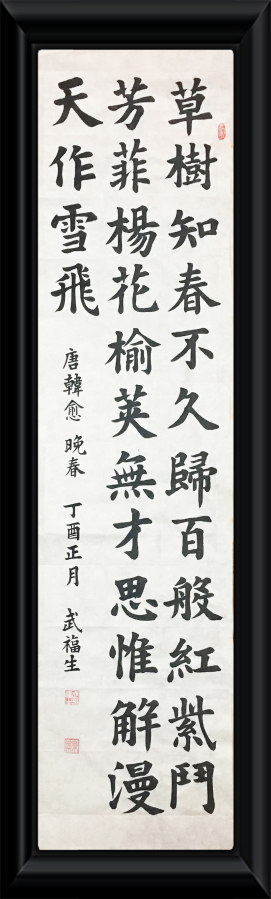 草樹知春不久歸百般紅紫鬥
芳菲楊花榆莢無才思惟解漫
天作雪飛
唐韓愈 晚春 丁酉正月 武福生